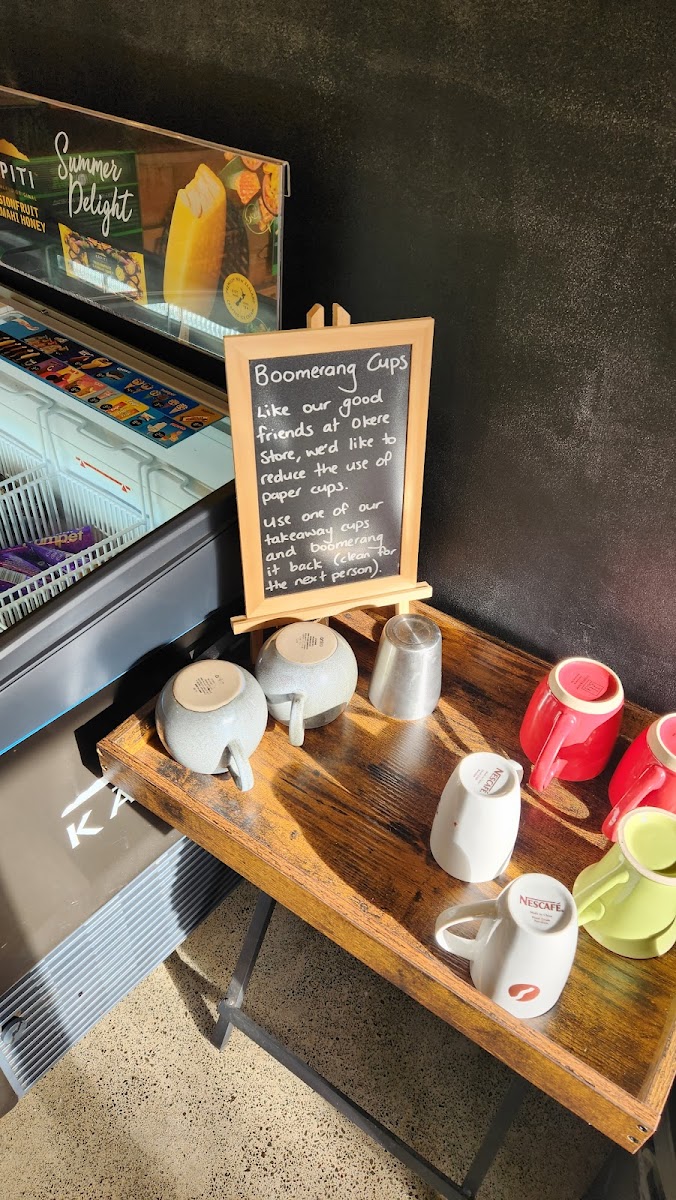 PITI
SIONFRUIT
MAHI HONEY
Summer
Delight
Boomerang Cups
Like our good
friends at Okere
Store, we'd like to
reduce the use of
paper cups.
Use one of our
takeaway cups
and boomerang
it back (clean for
the next person).
umpet
KA
NESCAFÉ
NESCAFÉ